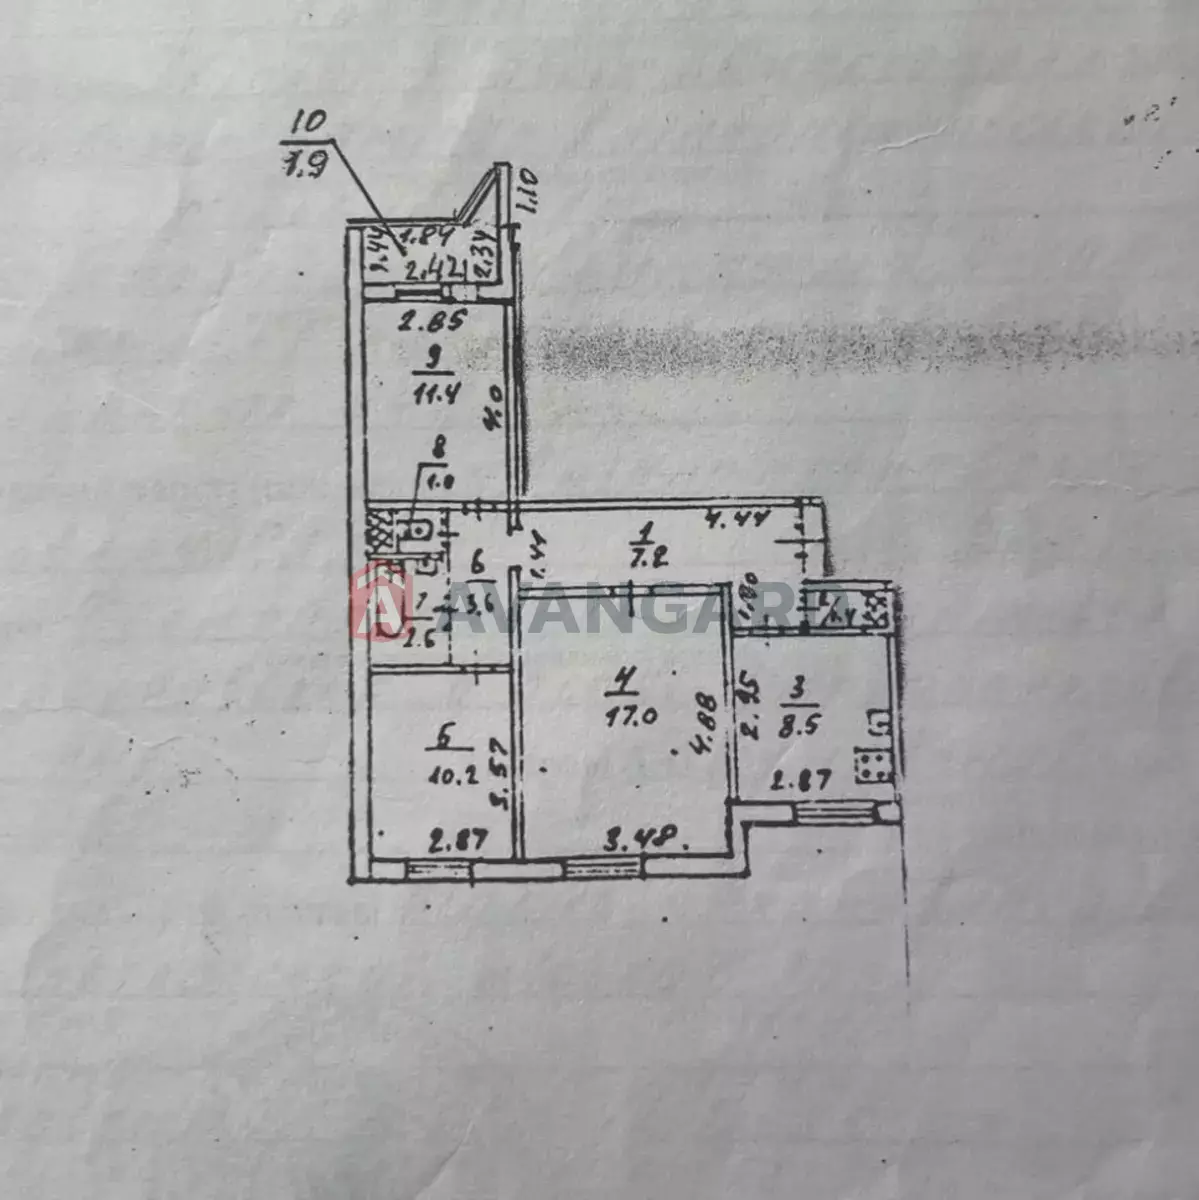 10
1.9
1.10
1.84
1.44
2.42
2.34
2.85
9
11.4
4.0
8
1.0
4.44
1
7.2
1.41
6
3.6
1.00
7
2.6
AVANGARD
4
17.0
4.88
2.95
3
8.5
2.87
5
10.2
3.57
2.87
3.48